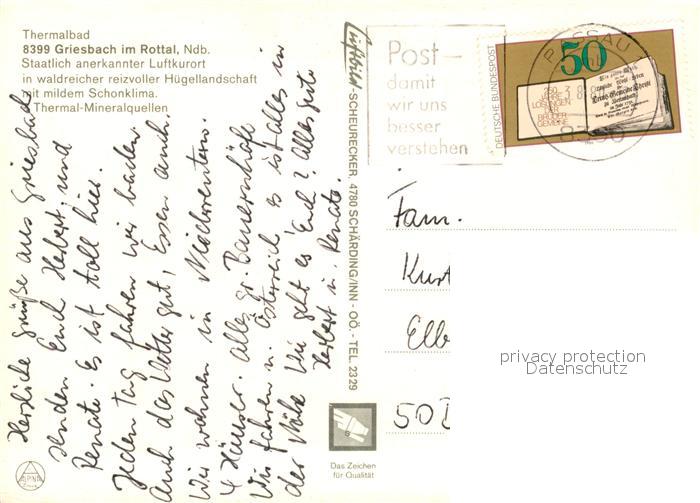 Thermalbad
8399 Griesbach im Rottal, Ndb.
Staatlich anerkannter Luftkurort
in waldreicher reizvoller Hügellandschaft
mit mildem Schonklima.
Thermal-Mineralquellen
Herzliche Grüße aus Griesbach
senden Euch Herbert und
Renate. Es ist toll hier.
Jeden Tag fahren wir baden.
Auch das Wetter gut, Essen auch.
Wir wohnen in
4 Häuser. Alles gr. Bauernhöfe
Wir fahren n. Österreich es ist alles in
der Nähe Wie geht es Euch? Alles Gute
Herbert u. Renate.
Luftbild SCHEURECKER 4780 SCHÄRDING/INN - OÖ. - TEL. 23 29
Das Zeichen
für Qualität
ALPINA
Post-
damit
wir uns
besser
verstehen
DEUTSCHE BUNDESPOST
50
250
JAHRE
LOSUNGEN
DER
BRÜDER
GEMEINE
PASSAU
Fam.
Kurt
Elb
50
privacy protection
Datenschutz